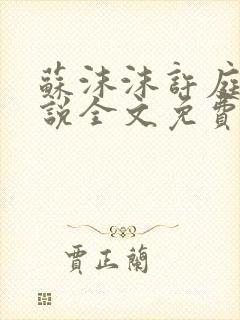 蘇沫沫許庭
說全文免費
賈正蘭